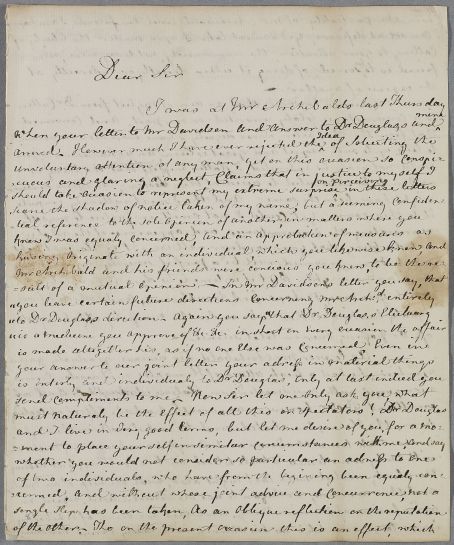 Dear Sir
I was at Mr Archibalds last Thursday
When your letter to Mr Davidson and answer to Dr Douglas's and mine
arrived. However much I have ever rejected the Idea of soliciting the
unvoluntary attention of any man, yet on this occasion so conspi-
cuous and glaring a neglect, Claims that in justice to myself I
should take occasion to represent my extreme surprise on perceiving in these letters
scarce the shadow of notice taken of my name; but a seeming confiden-
tial reference to the sole opinion of another, in matters where you
knew I was equaly concerned, and an approbation of measures as
having originate with an individual which you likewise knew and
Mr Archibald and his friends were conscious you knew, to be the re-
sult of a mutual opinion. In Mr Davidson's letter you say, that
you leave certain future directions concerning Mr Archd entirely
to Dr Douglas's direction. Again you say that Dr Douglas's
is a medicine you approve of &c &c in short on every occasion the affair
is made altogether his, as if no one else was concerned. Even in
your answer to our joint letter your adress in material things
is entirly and individualy to Dr Douglas, only at last indeed you
send compliments to me. Now Sir let me only ask you what
must naturaly be the effect of all this on Spectators? Dr Douglas
and I live in very good terms, but let me desire of you for a mo-
ment to place yourself in similar circumstances with me and say
whether you would not consider so particular an adress to one
of two individuals, who have from the begining been equaly con-
cerned, and without whose joint advice and concurrence not a
single step has been taken, as an oblique reflection on the reputation
of the other. Tho on the present occasion this is an effect, which